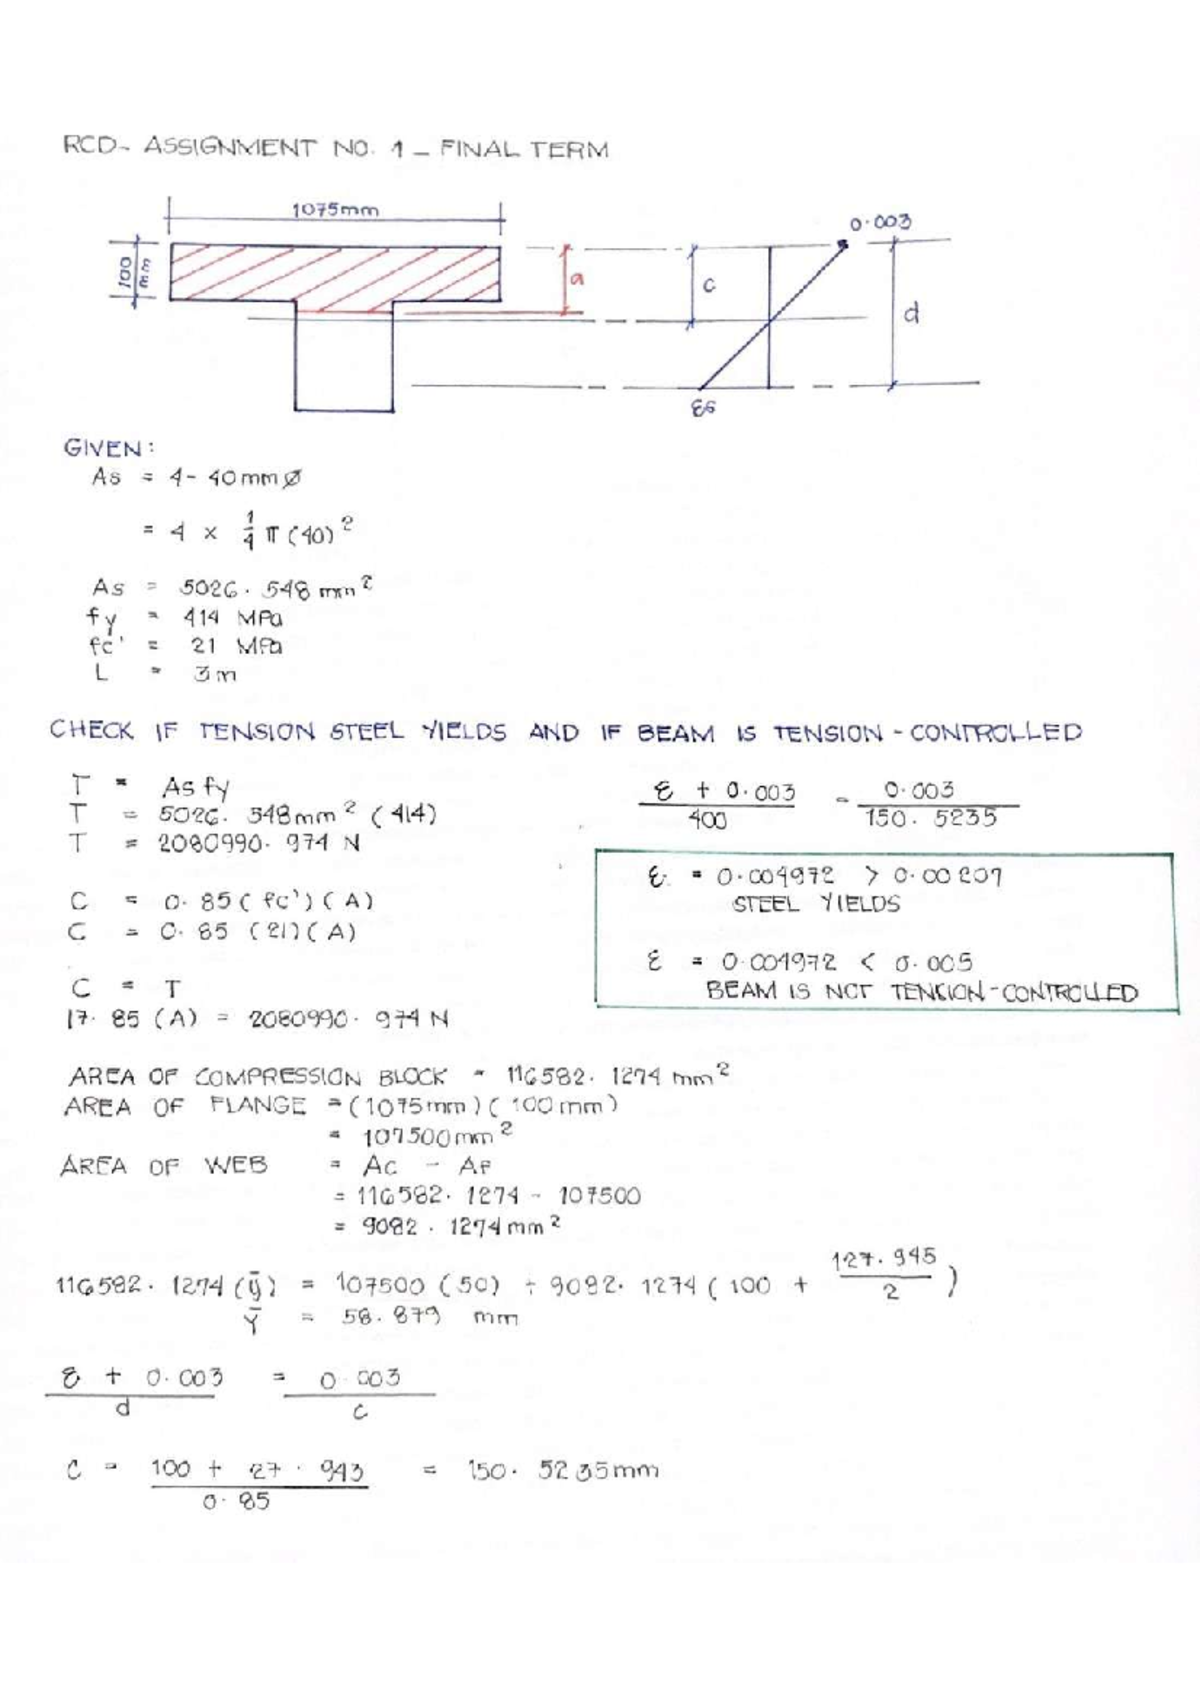 RCD- ASSIGNMENT NO. 1 _ FINAL TERM
1075mm
0.003
100 mm
a
c
d
εs
GIVEN:
As = 4- 40mm∅
= 4 x 1/4 π (40)²
As = 5026.548 mm²
fy = 414 MPa
fc' = 21 MPa
L = 3m
CHECK IF TENSION STEEL YIELDS AND IF BEAM IS TENSION-CONTROLLED
T = As fy
T = 5026.548mm² (414)
T = 2080990.974 N
C = 0.85 (fc') (A)
C = 0.85 (21) (A)
C = T
17.85 (A) = 2080990.974 N
ε + 0.003 / 400 = 0.003 / 150.5235
ε = 0.004972 > 0.00207
STEEL YIELDS
ε = 0.004972 < 0.005
BEAM IS NOT TENSION-CONTROLLED
AREA OF COMPRESSION BLOCK = 116582.1274 mm²
AREA OF FLANGE = (1075mm) (100mm)
= 107500mm²
AREA OF WEB = Ac - Af
= 116582.1274 - 107500
= 9082.1274mm²
116582.1274 (ȳ) = 107500 (50) + 9082.1274 (100 + 127.945 / 2)
Ȳ = 58.879 mm
ε + 0.003 / d = 0.003 / c
C = 100 + 27.943 / 0.85 = 150.5235mm